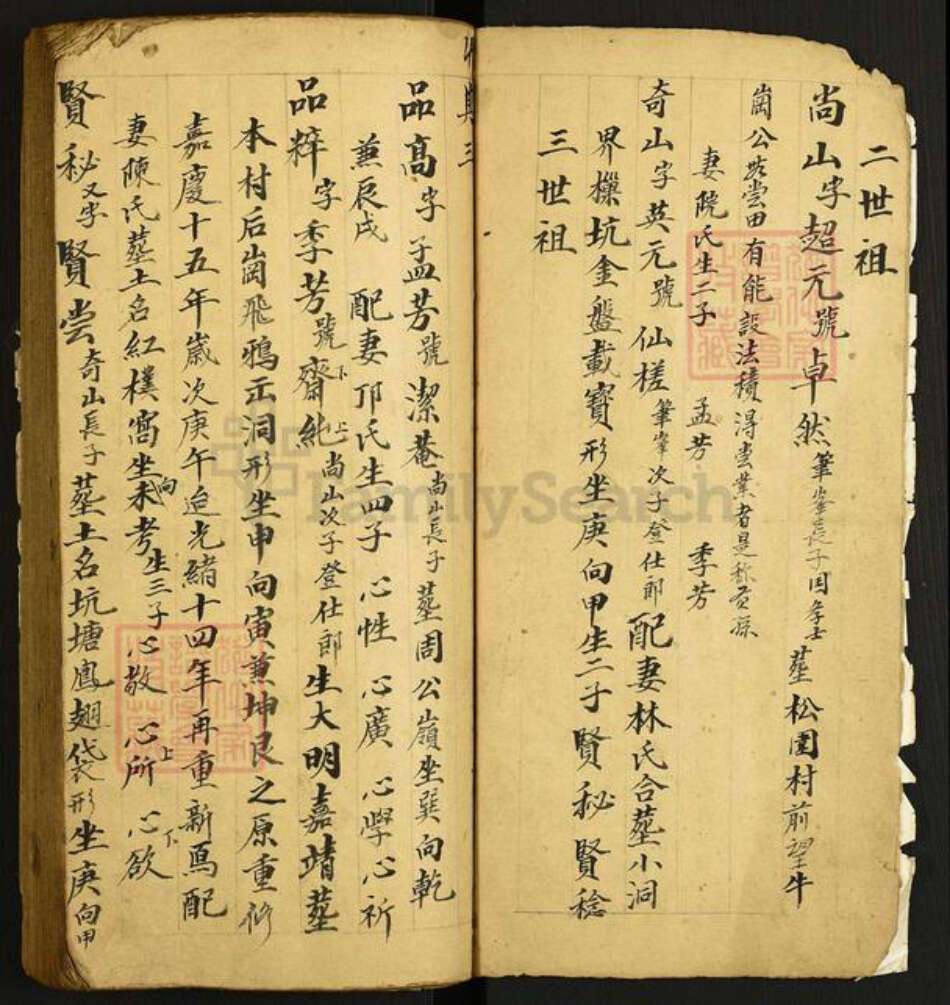 二世祖
尚山字超元號卓然筆峯長子因孝士塟松圍村前望牛
崗公嘗田有能設法積得嘗業者是称
妻院氏生二子 孟芳 季芳
奇山字英元號仙槎筆峯次子登仕郎配妻林氏合塟小洞
界樔坑金盤載寶形坐庚向甲生二子賢秘賢稔
三世祖
品高字孟芳號潔菴尚山長子塟周公嶺坐巽向乾
兼辰戌 配妻邝氏生四子 心性 心廣 心學心祈
品粹字季芳號齋下純上尚山次子登仕郎生大明嘉靖塟
本村后崗飛鴉形坐申向寅兼坤艮之原重修
嘉慶十五年歲次庚午迨光緒十四年再重新焉配
妻陳氏塟土名紅樸窩坐未向考生三子心敬 心所上 心欲下
賢秘又字賢嘗奇山長子塟土名坑塘鳳翅袋形坐庚向甲
FamilySearch